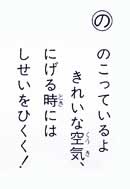 の
のこっているよ
きれいな空気、
にげる時には
しせいをひくく！